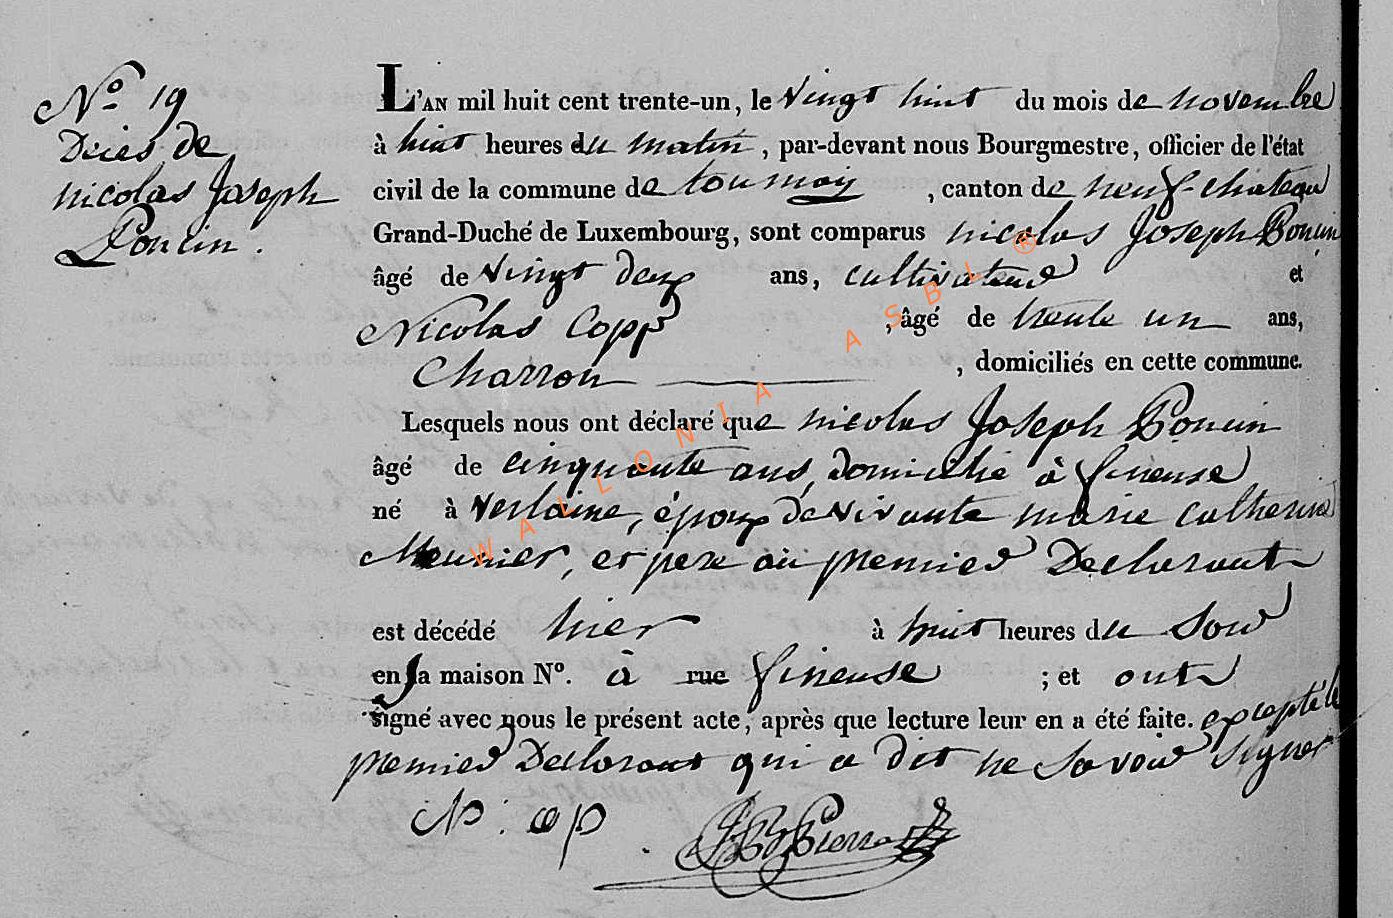 No 19
Décès de
nicolas Joseph
Poncin.
L'AN mil huit cent trente-un, le vingt huit du mois de novembre
à huit heures du matin, par-devant nous Bourgmestre, officier de l'état
civil de la commune de tournay, canton de neuf-chateau
Grand-Duché de Luxembourg, sont comparus nicolas Joseph Poncin
âgé de vingt deux ans, cultivateur et
Nicolas Copp, âgé de trente un ans,
Charron, domiciliés en cette commune.
Lesquels nous ont déclaré que nicolas Joseph Poncin
âgé de cinquante ans, domicilié à fineuse
né à verlaine, époux de vivante marie catherine
Meunier, et pere au premier Declarant
est décédé hier à huit heures du Soir
en sa maison No. à rue fineuse ; et ont
signé avec nous le présent acte, après que lecture leur en a été faite. excepté le
premier Declarant qui a dit ne Savoir Signer
N : Cop
JB Pierrard
WALLONIA ASBL ®